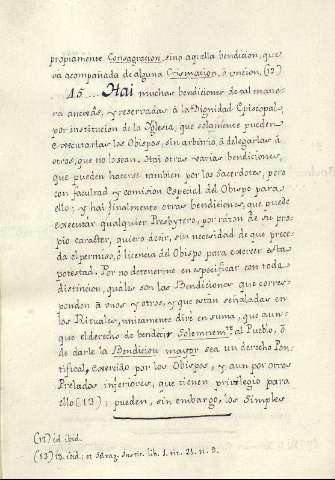 propiamente Consagracion, sino aquella bendicion, que
va acompañada de alguna Crismacion, ó uncion. (12)
15... Hai muchas bendiciones de tal mane-
ra anexâs, y reservadas â la Dignidad Episcopal
por institucion de la Yglesia, que solamente pueden
executarlas los Obispos, sin arbitrio â delegarlas â
otros, que no lo sean. Hai otras varias bendiciones,
que pueden hacerse tambien por los Sacerdotes, pero
con facultad y comision especial del Obispo para
ello; y hai finalmente otras bendiciones, que puede
executar qualquier Presbytero, por rázon de su pro-
pio caracter, quiero decir, sin necesidad de que prece-
da el permiso, ô licencia del Obispo para exercer esta
potestad. Por no detenerme en especificar con toda
distincion, quáles son las Bendiciones que corres-
ponden â unos y otros, y que están señaladas en
los Rituales, unicamente diré en suma, que aun-
que el derecho de bendecir Solemnemte. al Pueblo, ô
de darle la Bendicion mayor sea un derecho Pon-
tifical, exercido por los Obispos, y aun por otros
Prelados inferiores, que tienen privilegio para
ello (13); pueden, sin embargo, los Simples
(12) id. ibid.
(13) Id. ibid.; et Instit. lib. 1. tit. 21. n. 9.